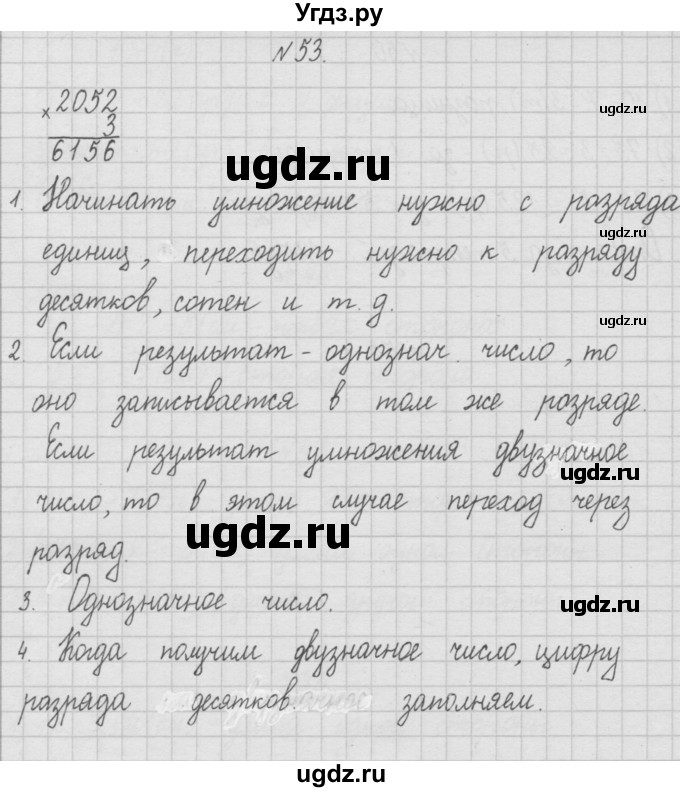 Угдз.ру
N 53.
× 2052
ugdz.ru
3
6156
ugdz.ru
1. Начинать умножение нужно с разряда
ugdz.ru
единиц, переходить нужно к разряду
ugdz.ru
десятков, сотен и т.д.
2 Если результат - однознач. число, то
ugdz.ru
оно записывается в том же разряде.
Если результат умножения двузначное
ugdz.ru
число, то в этом случае переход через
ugdz.ru
разряд.
3. Однозначное число.
ugdz.ru
4. Когда получим двузначное число, цифру
разряда десятков. заполняем.
ugdz.ru
ugdz.ru